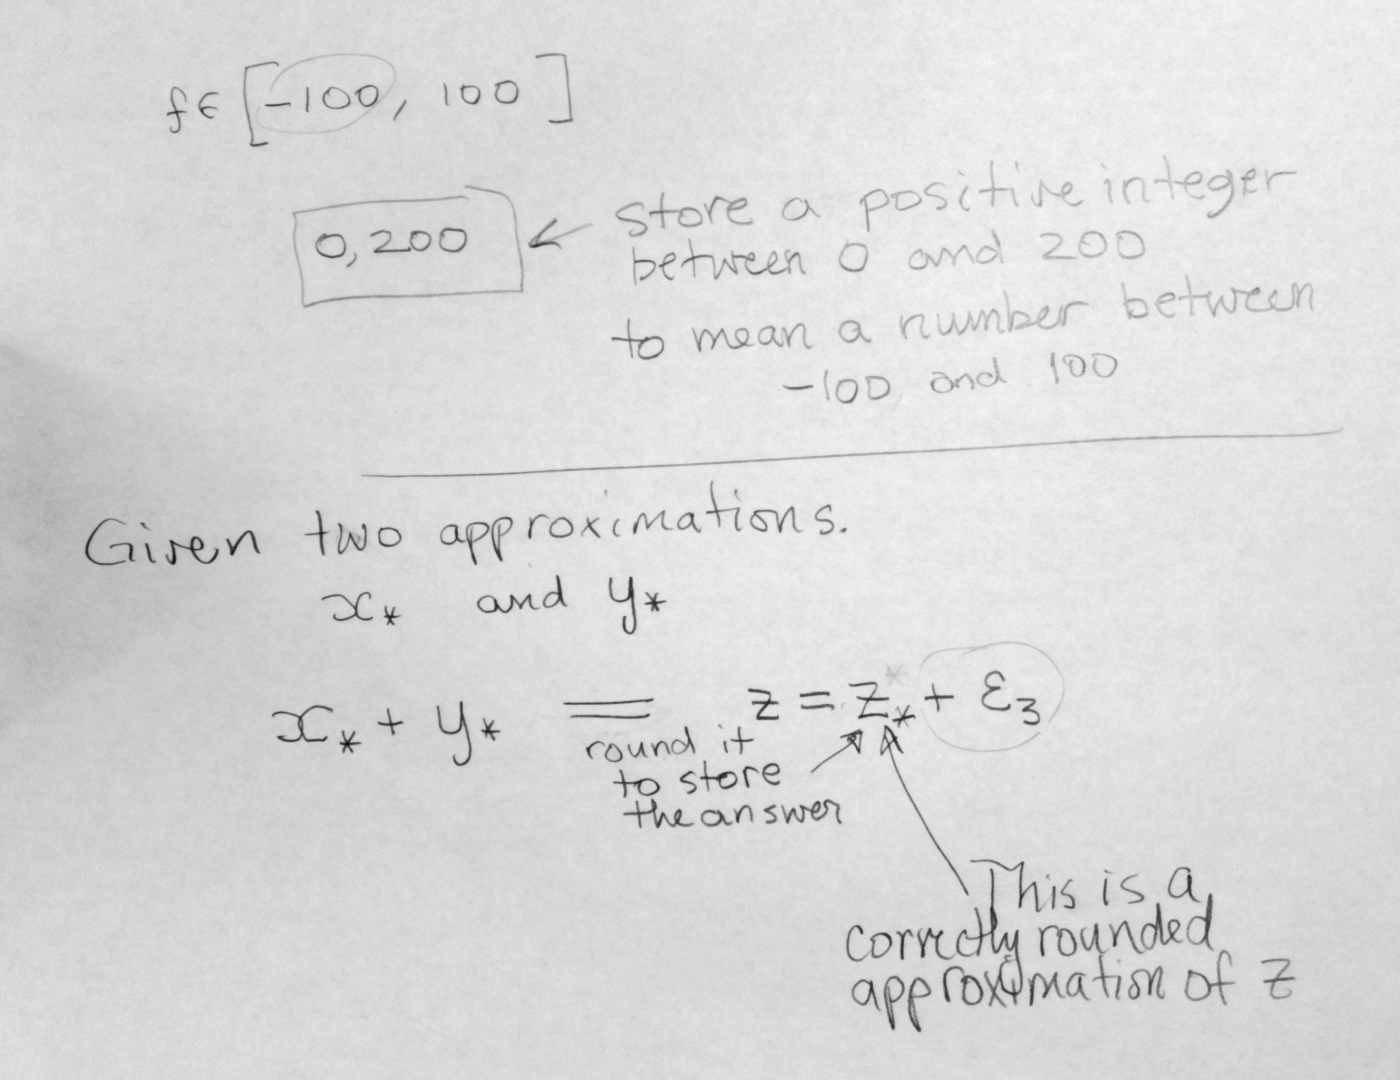 f ∈ [-100, 100]
0,200
store a positive integer
between 0 and 200
to mean a number between
-100 and 100
Given two approximations.
x* and y*
x* + y* = z = z* + ε3
round it
to store
the answer
This is a
correctly rounded
approximation of z